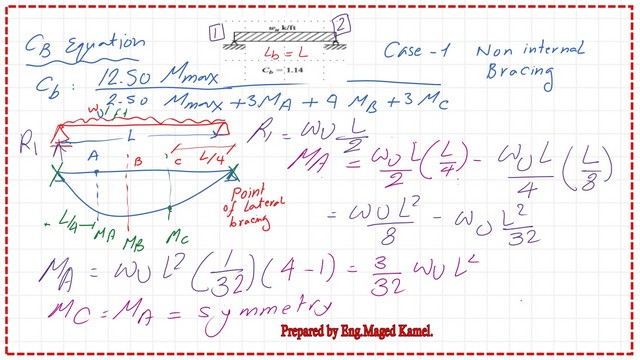 1
w_u k/ft
2
L_b = L
C_b = 1.14
C_B Equation
Case -1 Non internal
Bracing
C_b: 12.50 M_max / 2.50 M_max + 3 M_A + 4 M_B + 3 M_C
w_U k/ft
R_1
L
A
B
C
L/4
L/4
M_A
M_B
M_C
Point
of lateral
bracing
R_1 = w_U L/2
M_A = w_U L/2 (L/4) - w_U L/4 (L/8)
= w_U L²/8 - w_U L²/32
M_A = w_U L² (1/32)(4-1) = 3/32 w_U L²
M_C = M_A = symmetry
Prepared by Eng.Maged Kamel.